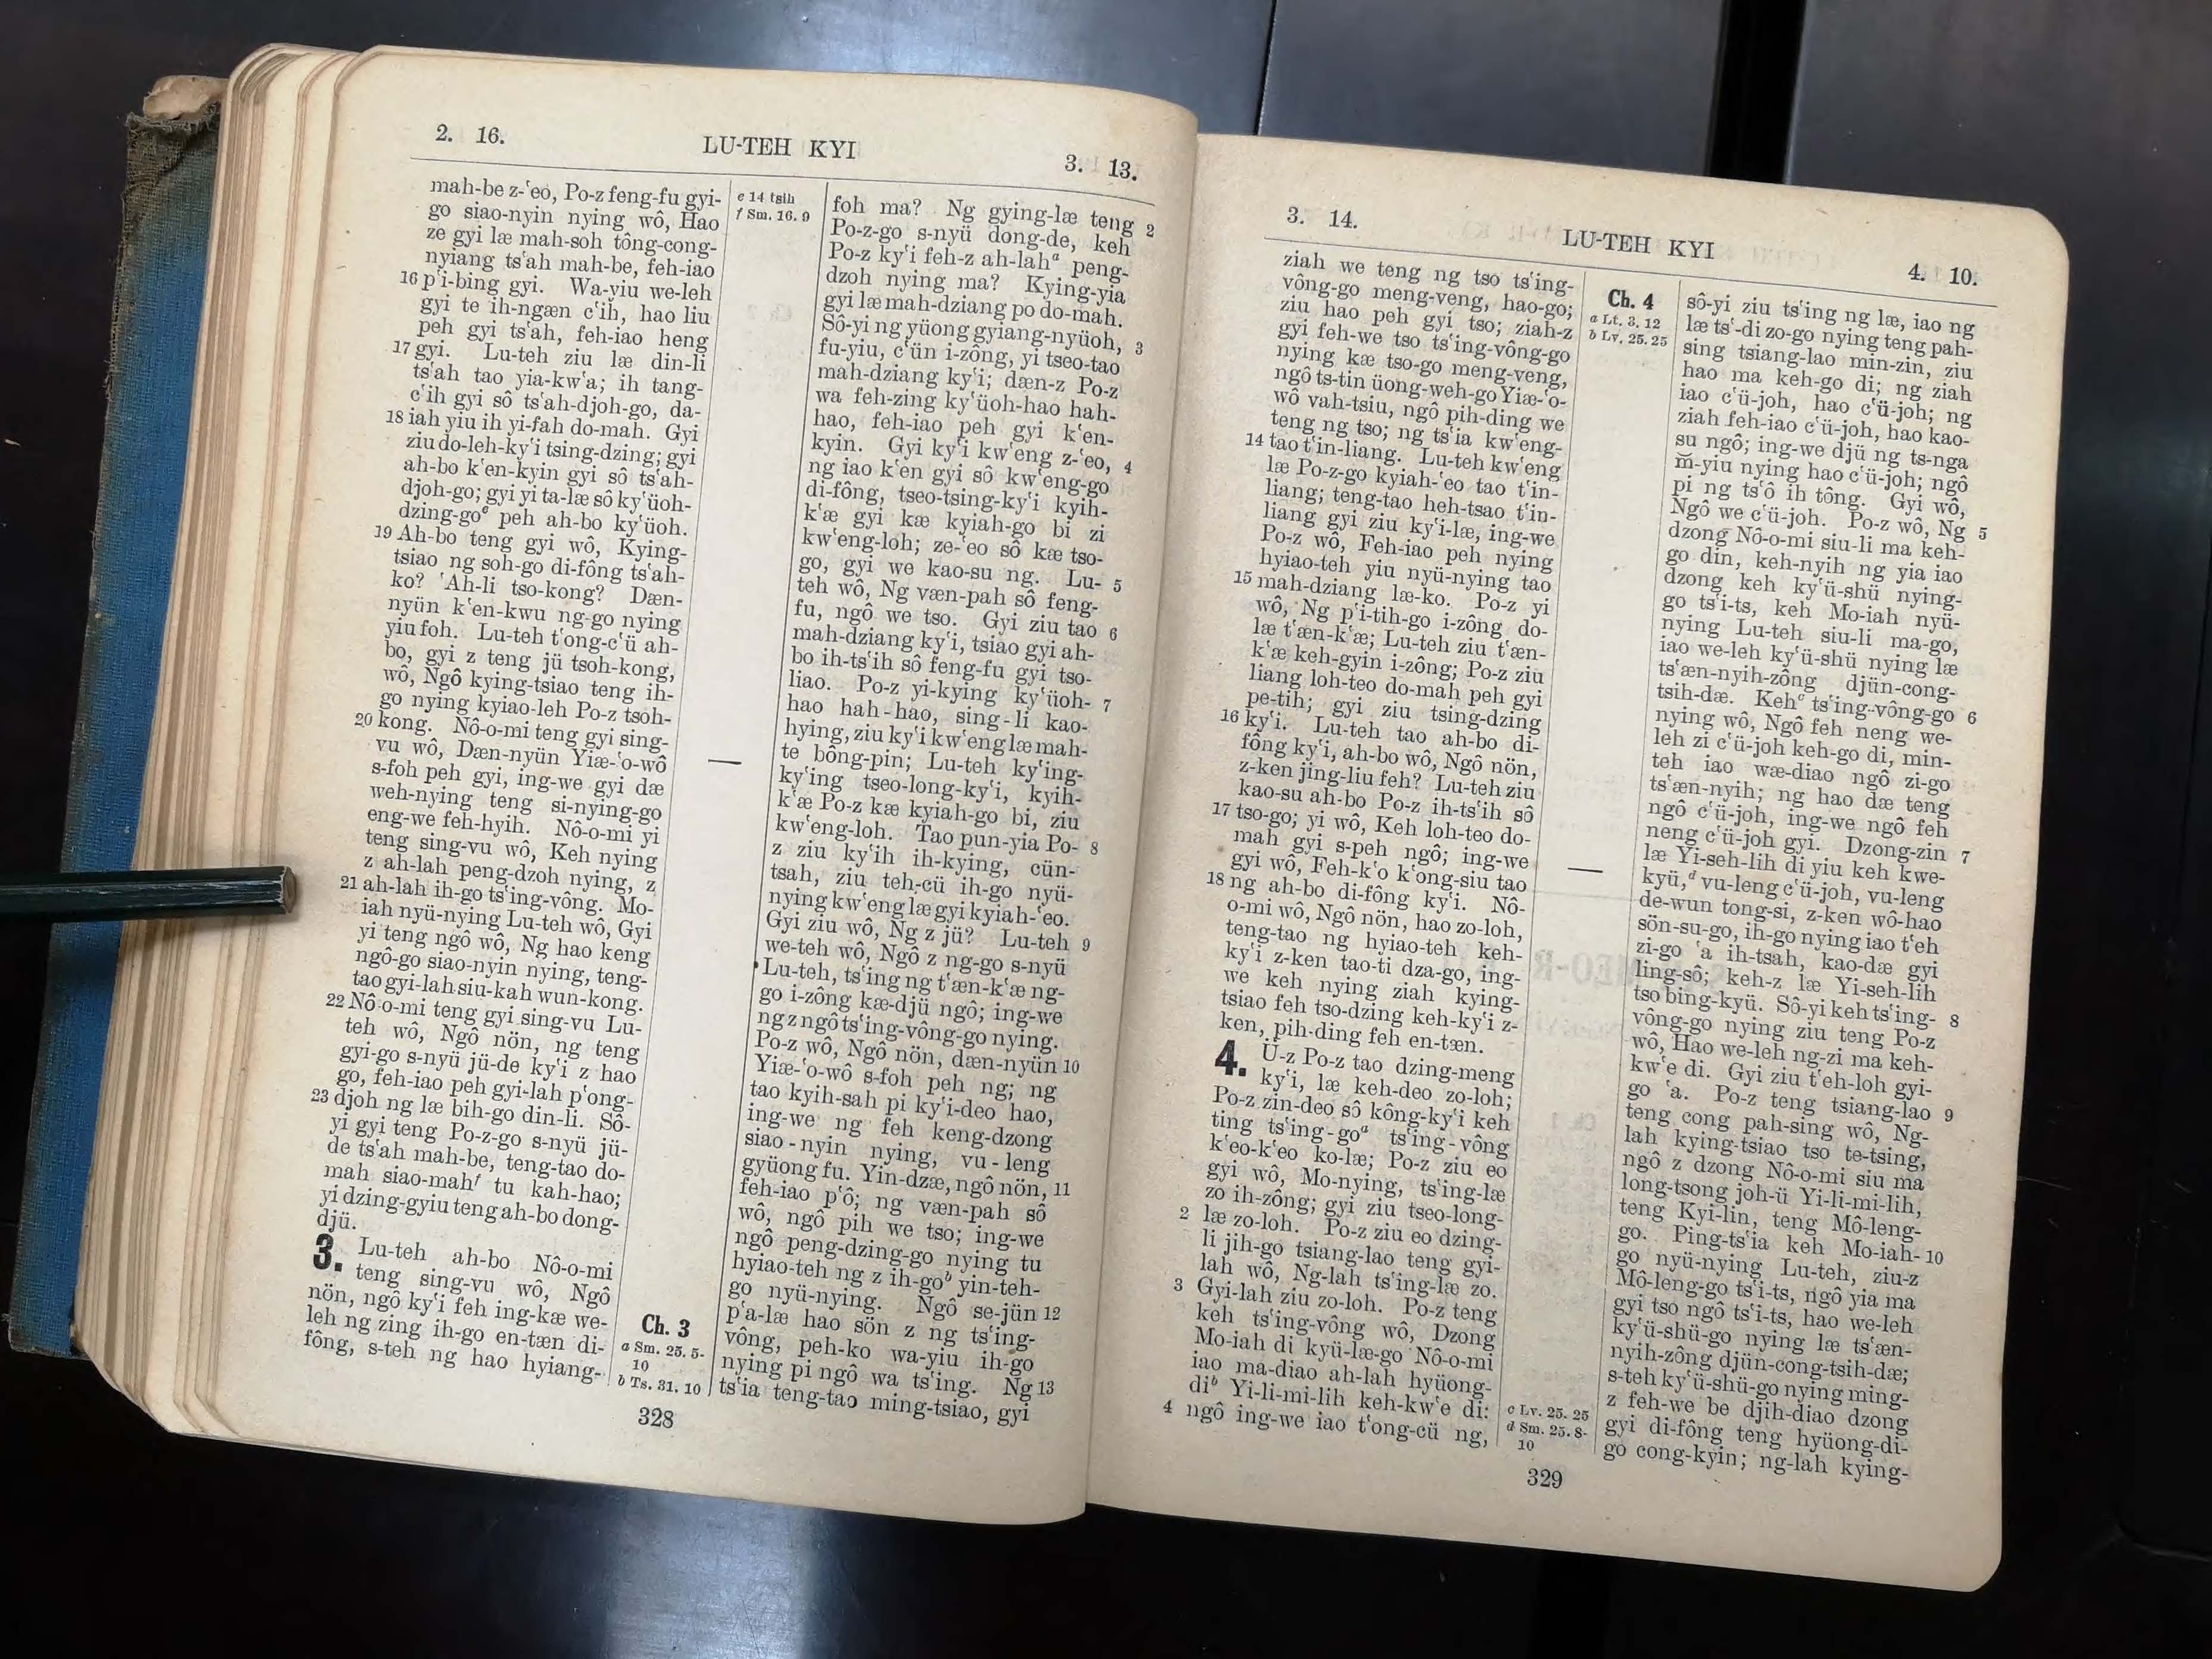 2. 16.
LU-TEH KYI
3. 13.
mah-be z-ʻeo, Po-z feng-fu gyi-
go siao-nyin nying wô, Hao
ze gyi læ mah-soh tông-cong-
nyiang tsʻah mah-be, feh-iao
16 pʻi-bing gyi. Wa-yiu we-leh
gyi te ih-ngæn cʻih, hao liu
peh gyi tsʻah, feh-iao heng
17 gyi. Lu-teh ziu læ din-li
tsʻah tao yia-kwʻa; ih tang-
cʻih gyi sô tsʻah-djoh-go, da-
18 iah yiu ih yi-fah do-mah. Gyi
ziu do-leh-kyʻi tsing-dzing; gyi
ah-bo kʻen-kyin gyi sô tsʻah-
djoh-go; gyi yi ta-læ sô kyʻüoh-
dzing-goᵉ peh ah-bo kyʻüoh.
19 Ah-bo teng gyi wô, Kying-
tsiao ng soh-go di-fông tsʻah-
ko? ʻAh-li tso-kong? Dæn-
nyün kʻen-kwu ng-go nying
yiu foh. Lu-teh tʻong-cʻü ah-
bo, gyi z teng jü tsoh-kong,
wô, Ngô kying-tsiao teng ih-
go nying kyiao-leh Po-z tsoh-
20 kong. Nô-o-mi teng gyi sing-
vu wô, Dæn-nyün Yiæ-ʻo-wô
s-foh peh gyi, ing-we gyi dæ
weh-nying teng si-nying-go
eng-we feh-hyih. Nô-o-mi yi
teng sing-vu wô, Keh nying
z ah-lah peng-dzoh nying, z
21 ah-lah ih-go tsʻing-vông. Mo-
iah nyü-nying Lu-teh wô, Gyi
yi teng ngô wô, Ng hao keng
ngô-go siao-nyin nying, teng-
tao gyi-lah siu-kah wun-kong.
22 Nô-o-mi teng gyi sing-vu Lu-
teh wô, Ngô nön, ng teng
gyi-go s-nyü jü-de kyʻi z hao
go, feh-iao peh gyi-lah pʻong-
23 djoh ng læ bih-go din-li. Sô-
yi gyi teng Po-z-go s-nyü jü-
de tsʻah mah-be, teng-tao do-
mah siao-mahᶠ tu kah-hao;
yi dzing-gyiu teng ah-bo dong-
djü.
3. Lu-teh ah-bo Nô-o-mi
teng sing-vu wô, Ngô
nön, ngô kyʻi feh ing-kæ we-
leh ng zing ih-go en-tæn di-
fông, s-teh ng hao hyiang-
e 14 tsih
f Sm. 16. 9
Ch. 3
a Sm. 25. 5-
10
b Ts. 31. 10
foh ma? Ng gying-læ teng 2
Po-z-go s-nyü dong-de, keh
Po-z kyʻi feh-z ah-lahᵃ peng-
dzoh nying ma? Kying-yia
gyi læ mah-dziang po do-mah.
Sô-yi ng yüong gyiang-nyüoh, 3
fu-yiu, cʻün i-zông, yi tseo-tao
mah-dziang kyʻi; dæn-z Po-z
wa feh-zing kyʻüoh-hao hah-
hao, feh-iao peh gyi kʻen-
kyin. Gyi kyʻi kwʻeng z-ʻeo, 4
ng iao kʻen gyi sô kwʻeng-go
di-fông, tseo-tsing-kyʻi kyih-
kʻæ gyi kæ kyiah-go bi zi
kwʻeng-loh; ze-ʻeo sô kæ tso-
go, gyi we kao-su ng. Lu- 5
teh wô, Ng væn-pah sô feng-
fu, ngô we tso. Gyi ziu tao 6
mah-dziang kyʻi, tsiao gyi ah-
bo ih-tsʻih sô feng-fu gyi tso-
liao. Po-z yi-kying kyʻüoh- 7
hao hah-hao, sing-li kao-
hying, ziu kyʻi kwʻeng læ mah-
te bông-pin; Lu-teh kyʻing-
kyʻing tseo-long-kyʻi, kyih-
kʻæ Po-z kæ kyiah-go bi, ziu
kwʻeng-loh. Tao pun-yia Po- 8
z ziu kyʻih ih-kying, cün-
tsah, ziu teh-cü ih-go nyü-
nying kwʻeng læ gyi kyiah-ʻeo.
Gyi ziu wô, Ng z jü? Lu-teh 9
we-teh wô, Ngô z ng-go s-nyü
Lu-teh, tsʻing ng tʻæn-kʻæ ng-
go i-zông kæ-djü ngô; ing-we
ng z ngô tsʻing-vông-go nying.
Po-z wô, Ngô nön, dæn-nyün 10
Yiæ-ʻo-wô s-foh peh ng; ng
tao kyih-sah pi kyʻi-deo hao,
ing-we ng feh keng-dzong
siao-nyin nying, vu-leng
gyüong fu. Yin-dzæ, ngô nön, 11
feh-iao pʻô; ng væn-pah sô
wô, ngô pih we tso; ing-we
ngô peng-dzing-go nying tu
hyiao-teh ng z ih-goᵇ yin-teh-
go nyü-nying. Ngô se-jün 12
pʻa-læ hao sön z ng tsʻing-
vông, peh-ko wa-yiu ih-go
nying pi ngô wa tsʻing. Ng 13
tsʻia teng-tao ming-tsiao, gyi
328
3. 14.
LU-TEH KYI
4. 10.
ziah we teng ng tso tsʻing-
vông-go meng-veng, hao-go;
ziu hao peh gyi tso; ziah-z
gyi feh-we tso tsʻing-vông-go
nying kæ tso-go meng-veng,
ngô ts-tin üong-weh-go Yiæ-ʻo-
wô vah-tsiu, ngô pih-ding we
teng ng tso; ng tsʻia kwʻeng-
14 tao tʻin-liang. Lu-teh kwʻeng
læ Po-z-go kyiah-ʻeo tao tʻin-
liang; teng-tao heh-tsao tʻin-
liang gyi ziu kyʻi-læ, ing-we
Po-z wô, Feh-iao peh nying
hyiao-teh yiu nyü-nying tao
15 mah-dziang læ-ko. Po-z yi
wô, Ng pʻi-tih-go i-zông do-
læ tʻæn-kʻæ; Lu-teh ziu tʻæn-
kʻæ keh-gyin i-zông; Po-z ziu
liang loh-teo do-mah peh gyi
pe-tih; gyi ziu tsing-dzing
16 kyʻi. Lu-teh tao ah-bo di-
fông kyʻi, ah-bo wô, Ngô nön,
z-ken jing-liu feh? Lu-teh ziu
kao-su ah-bo Po-z ih-tsʻih sô
17 tso-go; yi wô, Keh loh-teo do-
mah gyi s-peh ngô; ing-we
gyi wô, Feh-kʻo kʻong-siu tao
18 ng ah-bo di-fông kyʻi. Nô-
o-mi wô, Ngô nön, hao zo-loh,
teng-tao ng hyiao-teh keh-
kyʻi z-ken tao-ti dza-go, ing-
we keh nying ziah kying-
tsiao feh tso-dzing keh-kyʻi z-
ken, pih-ding feh en-tæn.
4. Ü-z Po-z tao dzing-meng
kyʻi, læ keh-deo zo-loh;
Po-z zin-deo sô kông-kyʻi keh
ting tsʻing-goᵃ tsʻing-vông
kʻeo-kʻeo ko-læ; Po-z ziu eo
gyi wô, Mo-nying, tsʻing-læ
zo ih-zông; gyi ziu tseo-long-
2 læ zo-loh. Po-z ziu eo dzing-
li jih-go tsiang-lao teng gyi-
lah wô, Ng-lah tsʻing-læ zo.
3 Gyi-lah ziu zo-loh. Po-z teng
keh tsʻing-vông wô, Dzong
Mo-iah di kyü-læ-go Nô-o-mi
iao ma-diao ah-lah hyüong-
diᵇ Yi-li-mi-lih keh-kwʻe di:
4 ngô ing-we iao tʻong-cü ng,
Ch. 4
a Lt. 3. 12
b Lv. 25. 25
c Lv. 25. 25
d Sm. 25. 8-
10
sô-yi ziu tsʻing ng læ, iao ng
læ tsʻ-di zo-go nying teng pah-
sing tsiang-lao min-zin, ziu
hao ma keh-go di; ng ziah
iao cʻü-joh, hao cʻü-joh; ng
ziah feh-iao cʻü-joh, hao kao-
su ngô; ing-we djü ng ts-nga
m̄-yiu nying hao cʻü-joh; ngô
pi ng tsʻô ih tông. Gyi wô,
Ngô we cʻü-joh. Po-z wô, Ng 5
dzong Nô-o-mi siu-li ma keh-
go din, keh-nyih ng yia iao
dzong keh kyʻü-shü nying-
go tsʻi-ts, keh Mo-iah nyü-
nying Lu-teh siu-li ma-go,
iao we-leh kyʻü-shü nying læ
tsʻæn-nyih-zông djün-cong-
tsih-dæ. Kehᶜ tsʻing-vông-go 6
nying wô, Ngô feh neng we-
leh zi cʻü-joh keh-go di, min-
teh iao wæ-diao ngô zi-go
tsʻæn-nyih; ng hao dæ teng
ngô cʻü-joh, ing-we ngô feh
neng cʻü-joh gyi. Dzong-zin 7
læ Yi-seh-lih di yiu keh kwe-
kyü,ᵈ vu-leng cʻü-joh, vu-leng
de-wun tong-si, z-ken wô-hao
sön-su-go, ih-go nying iao tʻeh
zi-go ʻa ih-tsah, kao-dæ gyi
ling-sô; keh-z læ Yi-seh-lih
tso bing-kyü. Sô-yi keh tsʻing- 8
vông-go nying ziu teng Po-z
wô, Hao we-leh ng-zi ma keh-
kwʻe di. Gyi ziu tʻeh-loh gyi-
go ʻa. Po-z teng tsiang-lao 9
teng cong pah-sing wô, Ng-
lah kying-tsiao tso te-tsing,
ngô z dzong Nô-o-mi siu ma
long-tsong joh-ü Yi-li-mi-lih,
teng Kyi-lin, teng Mô-leng-
go. Ping-tsʻia keh Mo-iah- 10
go nyü-nying Lu-teh, ziu-z
Mô-leng-go tsʻi-ts, ngô yia ma
gyi tso ngô tsʻi-ts, hao we-leh
kyʻü-shü-go nying læ tsʻæn-
nyih-zông djün-cong-tsih-dæ;
s-teh kyʻü-shü-go nying ming-
z feh-we be djih-diao dzong
gyi di-fông teng hyüong-di-
go cong-kyin; ng-lah kying-
329